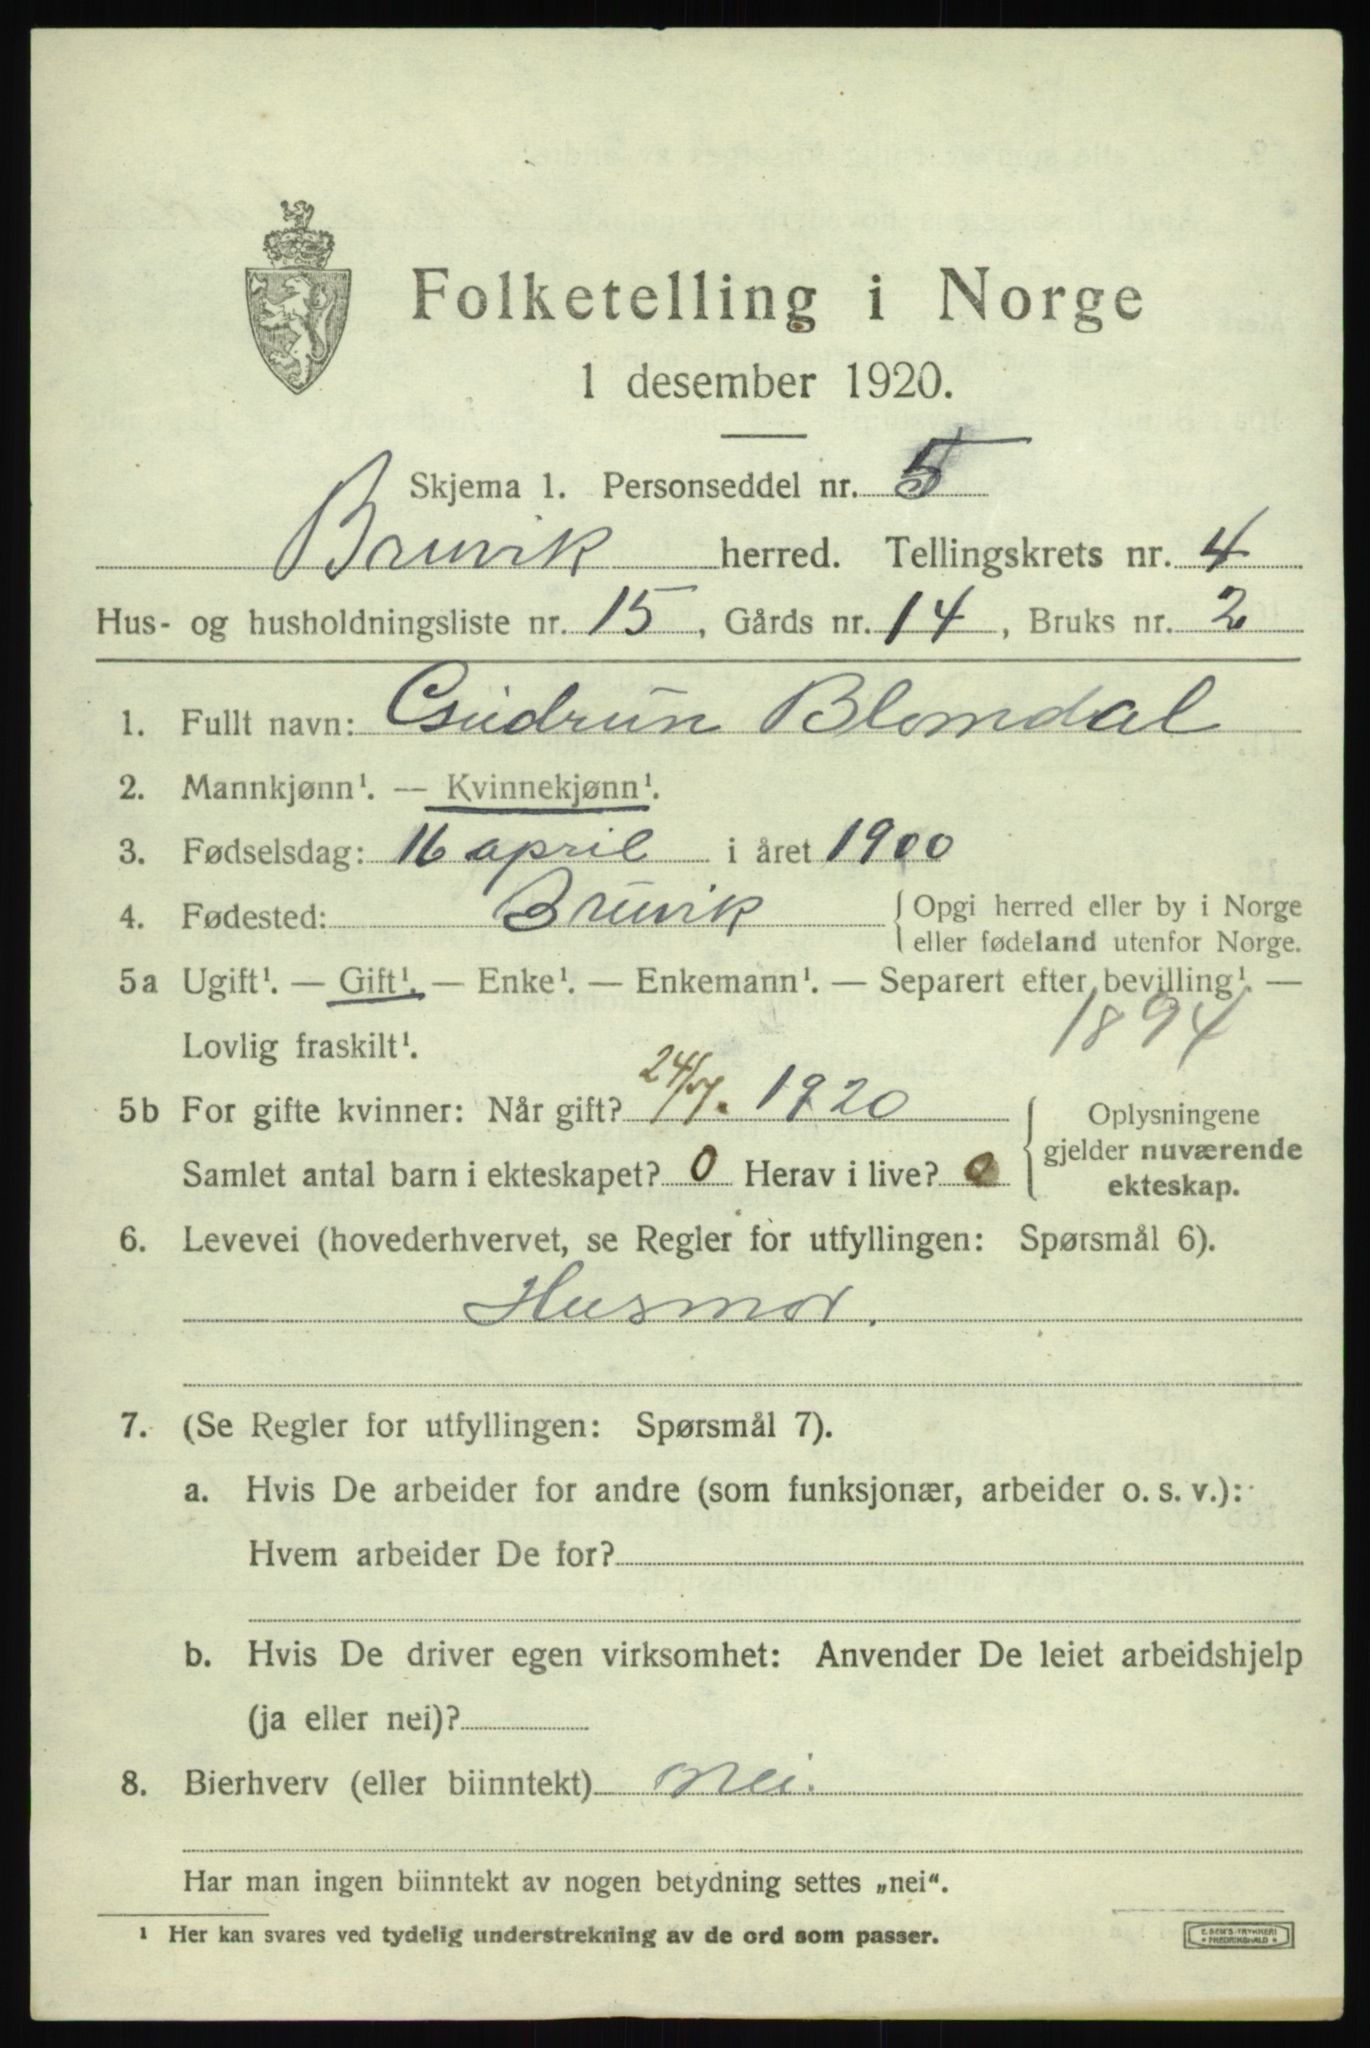 Folketelling i Norge
1 desember 1920.
Skjema 1. Personseddel nr. 5
Bruvik herred. Tellingskrets nr. 4
Hus- og husholdningsliste nr. 15, Gårds nr. 14, Bruks nr. 2
1. Fullt navn: Gudrun Blomdal
2. Mannkjønn¹. — Kvinnekjønn¹.
3. Fødselsdag: 16 april i året 1900
4. Fødested: Bruvik { Opgi herred eller by i Norge
eller fødeland utenfor Norge.
5a Ugift¹. — Gift¹. — Enke¹. — Enkemann¹. — Separert efter bevilling¹. —
Lovlig fraskilt¹. 1894
5b For gifte kvinner: Når gift? 24/ 1920 { Oplysningene
gjelder nuværende
Samlet antal barn i ekteskapet? 0 Herav i live? 0 ekteskap.
6. Levevei (hovederhvervet, se Regler for utfyllingen: Spørsmål 6).
Husmor.
7. (Se Regler for utfyllingen: Spørsmål 7).
a. Hvis De arbeider for andre (som funksjonær, arbeider o. s. v.):
Hvem arbeider De for?
b. Hvis De driver egen virksomhet: Anvender De leiet arbeidshjelp
(ja eller nei)?
8. Bierhverv (eller biinntekt) nei.
Har man ingen biinntekt av nogen betydning settes „nei“.
¹ Her kan svares ved tydelig understrekning av de ord som passer.